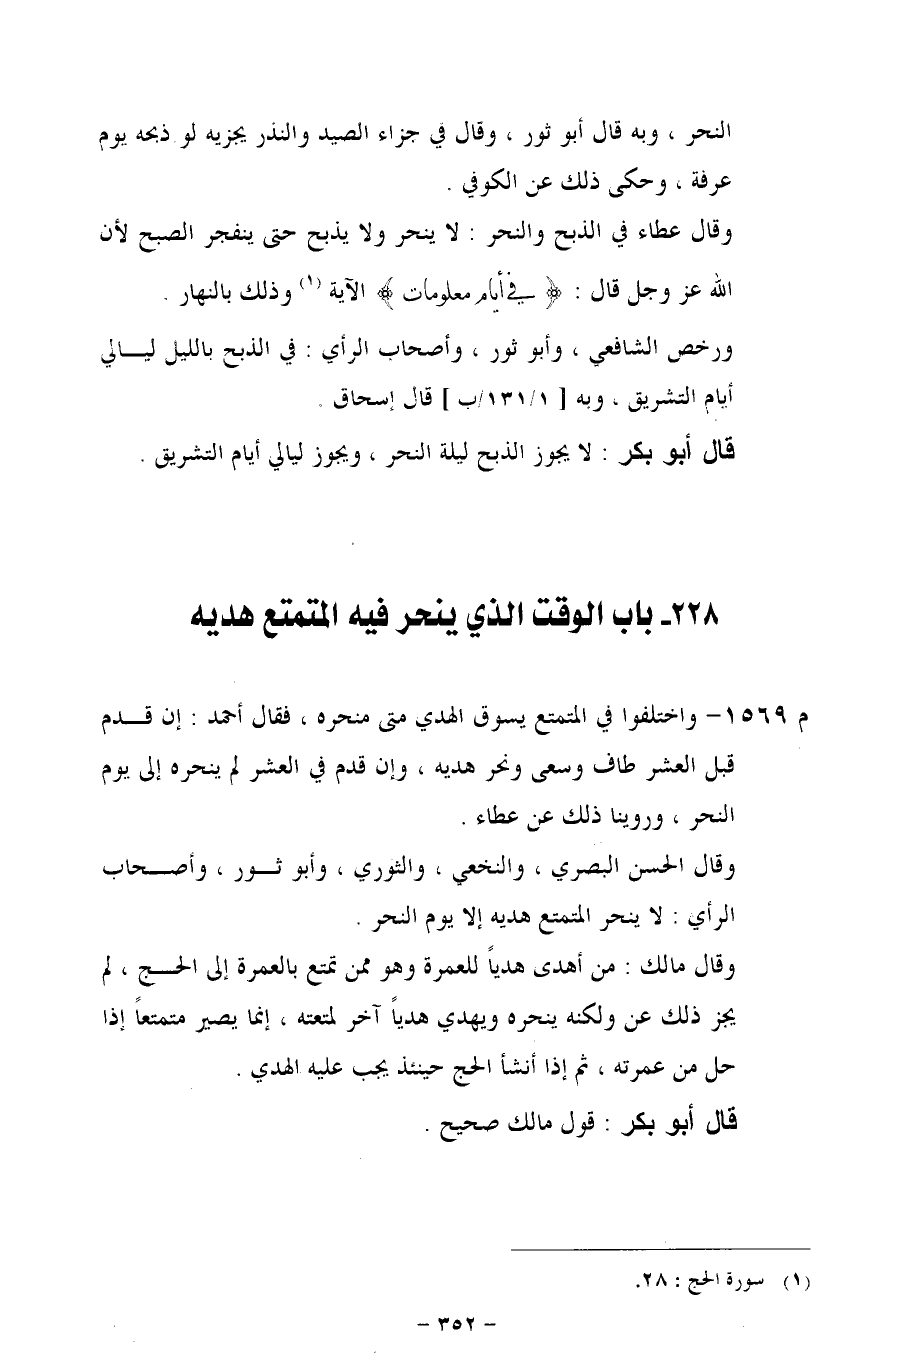 النحر ، وبه قال أبو ثور ، وقال في جزاء الصيد والنذر يجزيه لو ذبحه يوم
عرفة ، وحكى ذلك عن الكوفي .
وقال عطاء في الذبح والنحر : لا ينحر ولا يذبح حتى ينفجر الصبح لأن
الله عز وجل قال : ﴿ في أيام معلومات ﴾ الآية (١) وذلك بالنهار .
ورخص الشافعي ، وأبو ثور ، وأصحاب الرأي : في الذبح بالليل ليـــالي
أيام التشريق ، وبه [ ١/١٣١/ب ] قال إسحاق .
قال أبو بكر : لا يجوز الذبح ليلة النحر ، ويجوز ليالي أيام التشريق .
٢٢٨ـ باب الوقت الذي ينحر فيه المتمتع هديه
م ١٥٦٩– واختلفوا في المتمتع يسوق الهدي متى منحره ، فقال أحمد : إن قـــدم
قبل العشر طاف وسعى ونحر هديه ، وإن قدم في العشر لم ينحره إلى يوم
النحر ، وروينا ذلك عن عطاء .
وقال الحسن البصري ، والنخعي ، والثوري ، وأبو ثـــور ، وأصـــحاب
الرأي : لا ينحر المتمتع هديه إلا يوم النحر .
وقال مالك : من أهدى هدياً للعمرة وهو ممن تمتع بالعمرة إلى الحـــج ، لم
يجز ذلك عن ولكنه ينحره ويهدي هدياً آخر لمتعته ، إنما يصير متمتعاً إذا
حل من عمرته ، ثم إذا أنشأ الحج حينئذ يجب عليه الهدي .
قال أبو بكر : قول مالك صحيح .
(١) سورة الحج : ٢٨.
– ٣٥٢ –